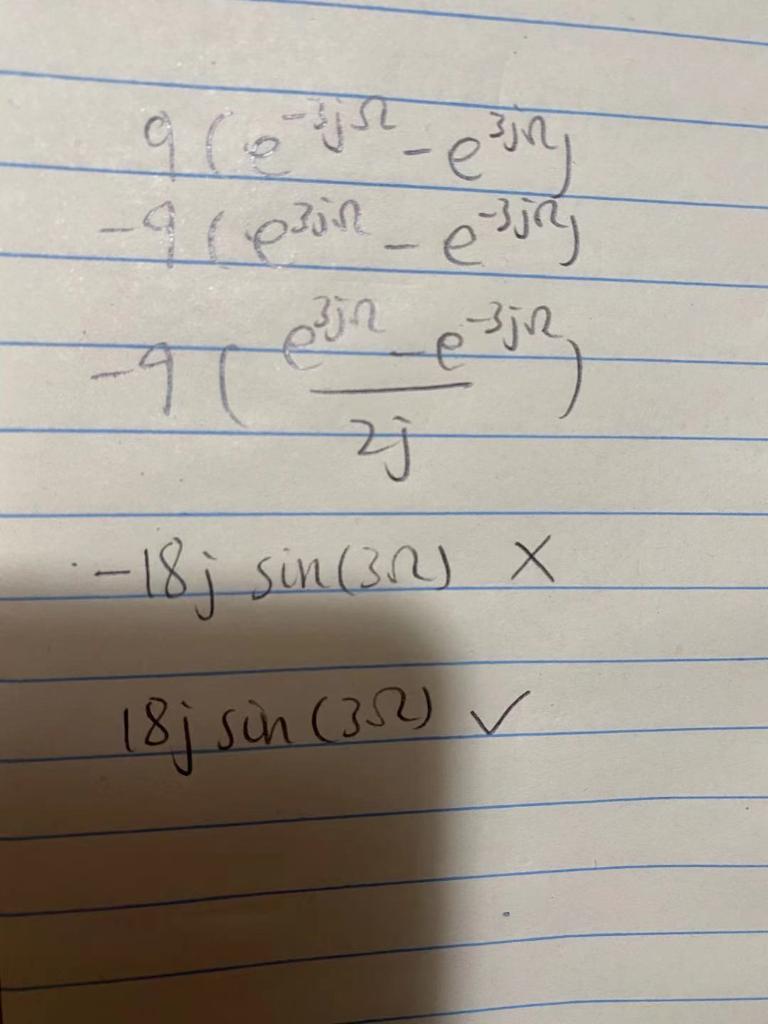 9 (e^{-3jΩ} - e^{3jΩ})
-9 (e^{3jΩ} - e^{-3jΩ})
-9 ( \frac{e^{3jΩ} - e^{-3jΩ}}{2j} )
-18j sin(3Ω) ×
18j sin(3Ω) ✓